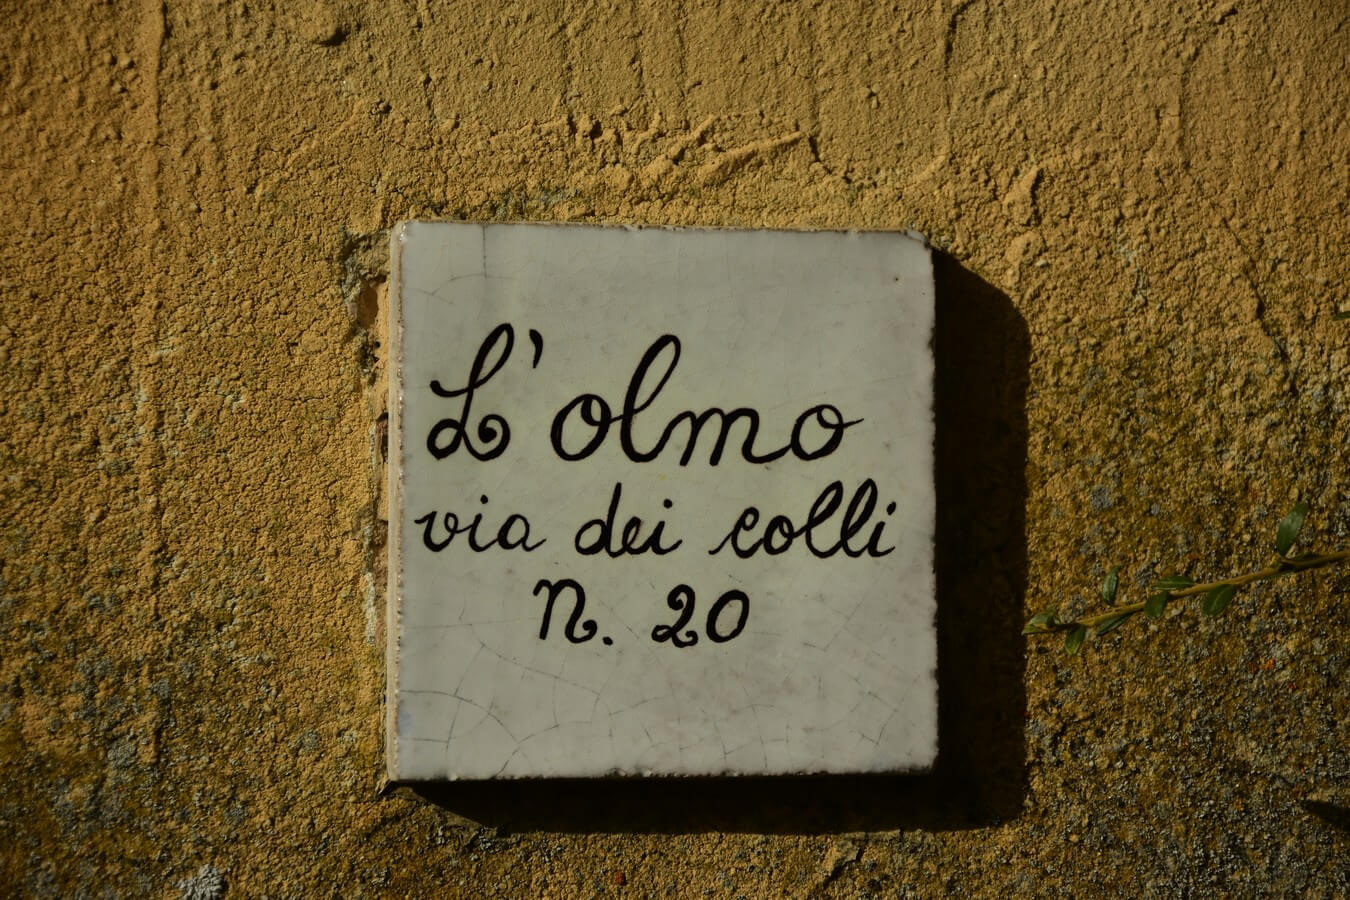 L'olmo
via dei colli
n. 20